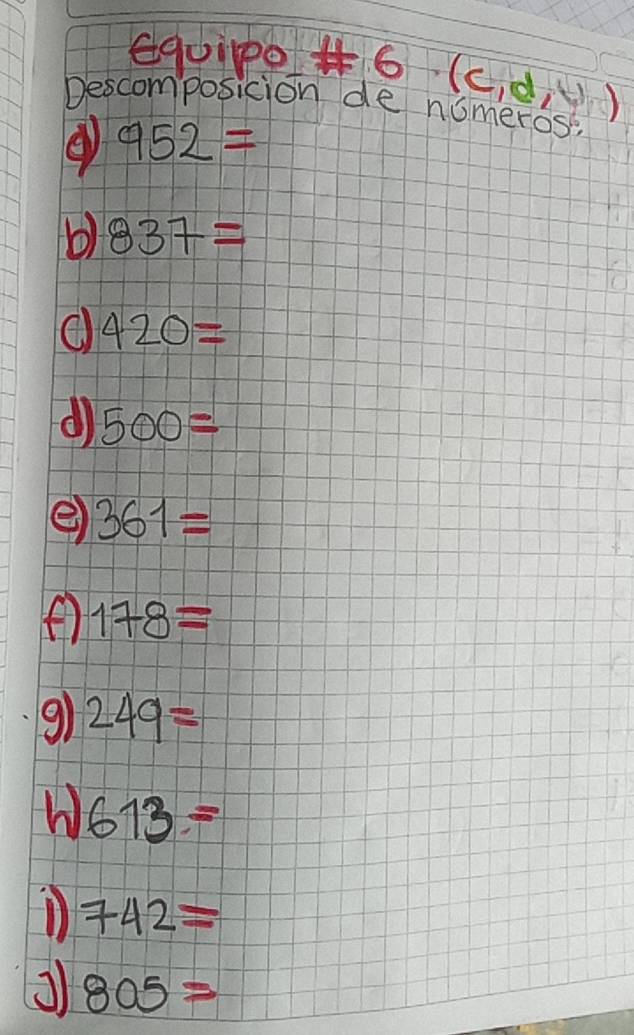 Equipo # 6 (c, d, u)
Descomposición de números:
a) 952 =
b) 837 =
c) 420 =
d) 500 =
e) 361 =
f) 178 =
g) 249 =
h) 613 =
i) 742 =
j) 805 =